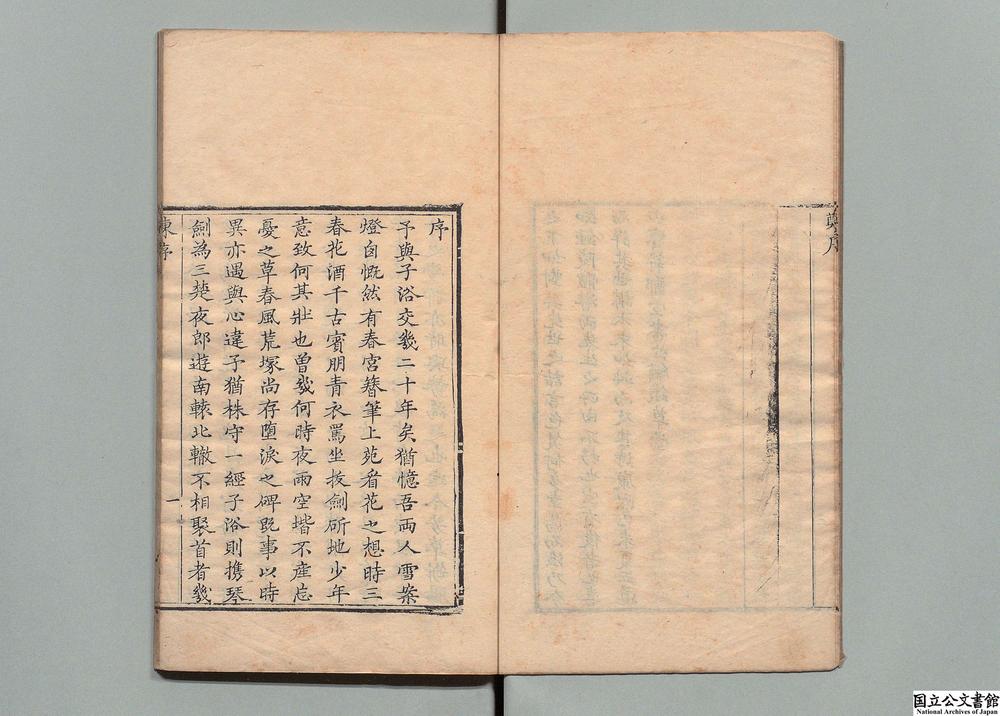 序
序
予與子浴交幾二十年矣猶憶吾両人雪案
燈囱慨然有春宮簪筆上苑看花之想時三
春花酒千古賓朋青衣罵坐拔劍斫地少年
意致何其壯也曾幾何時夜雨空堦不産忘
憂之草春風荒塚尚存堕淚之碑既事以時
異亦遇與心違予猶株守一經子浴則携琴
劍為三楚夜郎遊南轅北轍不相聚首者幾
序
一
国立公文書館
National Archives of Japan